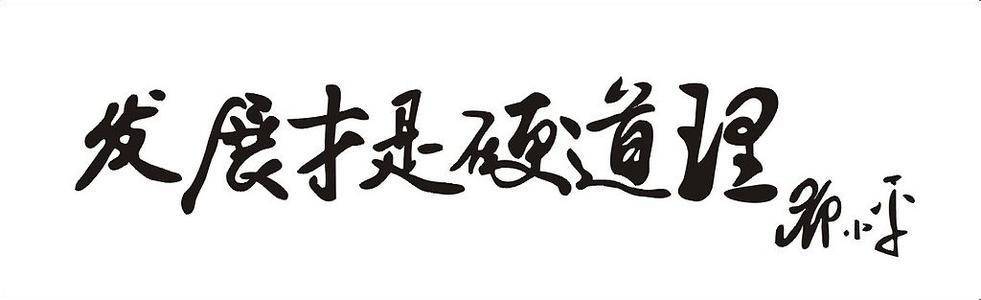 发展才是硬道理
邓小平